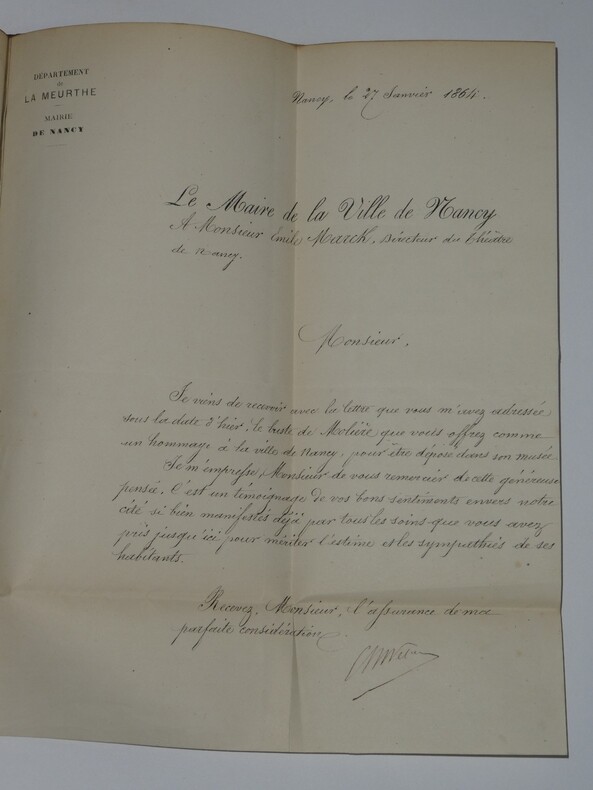 DÉPARTEMENT
de
LA MEURTHE
MAIRIE
DE NANCY
Nancy, le 27 Janvier 1864.
Le Maire de la Ville de Nancy
A Monsieur Emile Marck, Directeur du théâtre
de Nancy.
Monsieur,
Je viens de recevoir avec la lettre que vous m'avez adressée
sous la date d'hier, le buste de Molière que vous offrez comme
un hommage à la ville de Nancy, pour être déposé dans son musée.
Je m'empresse, Monsieur de vous remercier de cette généreuse
pensée. C'est un témoignage de vos bons sentiments envers notre
cité si bien manifestés déjà par tous les soins que vous avez
pris jusqu'ici pour mériter l'estime et les sympathies de ses
habitants.
Recevez, Monsieur, l'assurance de ma
parfaite considération.